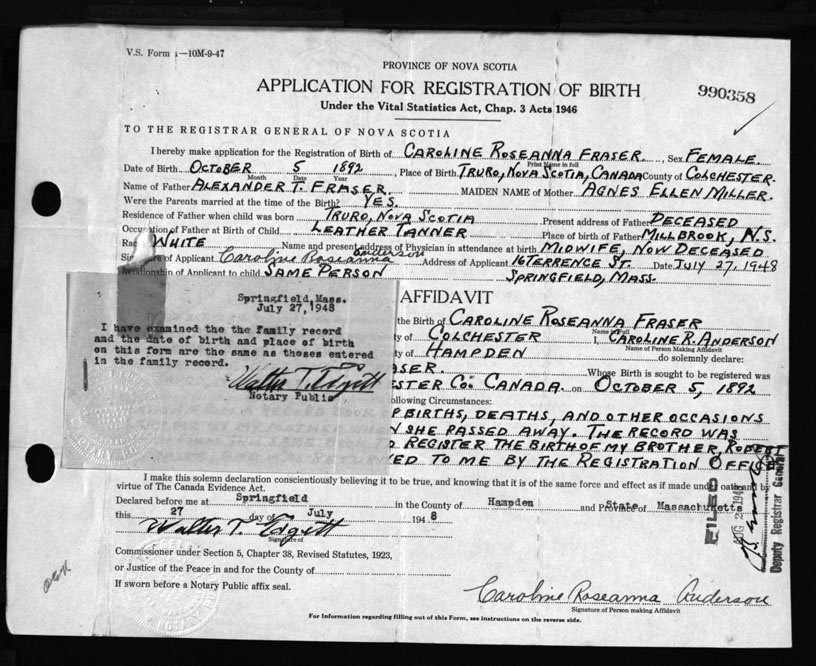 V.S. Form 1—10M-9-47
PROVINCE OF NOVA SCOTIA
APPLICATION FOR REGISTRATION OF BIRTH
990358
Under the Vital Statistics Act, Chap. 3 Acts 1946
TO THE REGISTRAR GENERAL OF NOVA SCOTIA
I hereby make application for the Registration of Birth of CAROLINE ROSEANNA FRASER. Sex FEMALE.
Print Name in full
Date of Birth OCTOBER 5 1892, Place of Birth TRURO, NOVA SCOTIA, CANADA County of COLCHESTER.
Month Date Year
Name of Father ALEXANDER T. FRASER. MAIDEN NAME of Mother AGNES ELLEN MILLER.
Were the Parents married at the time of the Birth? YES.
Residence of Father when child was born TRURO, NOVA SCOTIA Present address of Father DECEASED
Occupation of Father at Birth of Child LEATHER TANNER Place of birth of Father MILLBROOK, N.S.
Race WHITE Name and present address of Physician in attendance at birth MIDWIFE, NOW DECEASED
Signature of Applicant Caroline Roseanna Anderson Address of Applicant 16 TERRENCE ST. Date JULY 27, 1948
Relationship of Applicant to child SAME PERSON SPRINGFIELD, MASS.
Springfield, Mass.
July 27, 1948
I have examined the the family record
and the date of birth and place of birth
on this form are the same as thoses entered
in the family record.
Walter T. Edgett
Notary Public
AFFIDAVIT
the Birth of CAROLINE ROSEANNA FRASER
Name in Full
ty of COLCHESTER I, CAROLINE R. ANDERSON
Name of Person Making Affidavit
ty of HAMPDEN do solemnly declare:
ASER. Whose Birth is sought to be registered was
ESTER CO. CANADA. on OCTOBER 5, 1892
ollowing Circumstances:
F BIRTHS, DEATHS, AND OTHER OCCASIONS
N SHE PASSED AWAY. THE RECORD WAS
O REGISTER THE BIRTH OF MY BROTHER, ROBERT
ED TO ME BY THE REGISTRATION OFFICE
I make this solemn declaration conscientiously believing it to be true, and knowing that it is of the same force and effect as if made under oath and by
virtue of The Canada Evidence Act.
Declared before me at Springfield in the County of Hampden and Province of State of Massachusetts
this 27 day of July 1948
Walter T. Edgett
Signature of
Commissioner under Section 5, Chapter 38, Revised Statutes, 1923,
or Justice of the Peace in and for the County of
If sworn before a Notary Public affix seal.
Caroline Roseanna Anderson
Signature of Person making Affidavit
For Information regarding filling out of this Form, see instructions on the reverse side.
FILED
Deputy Registrar General